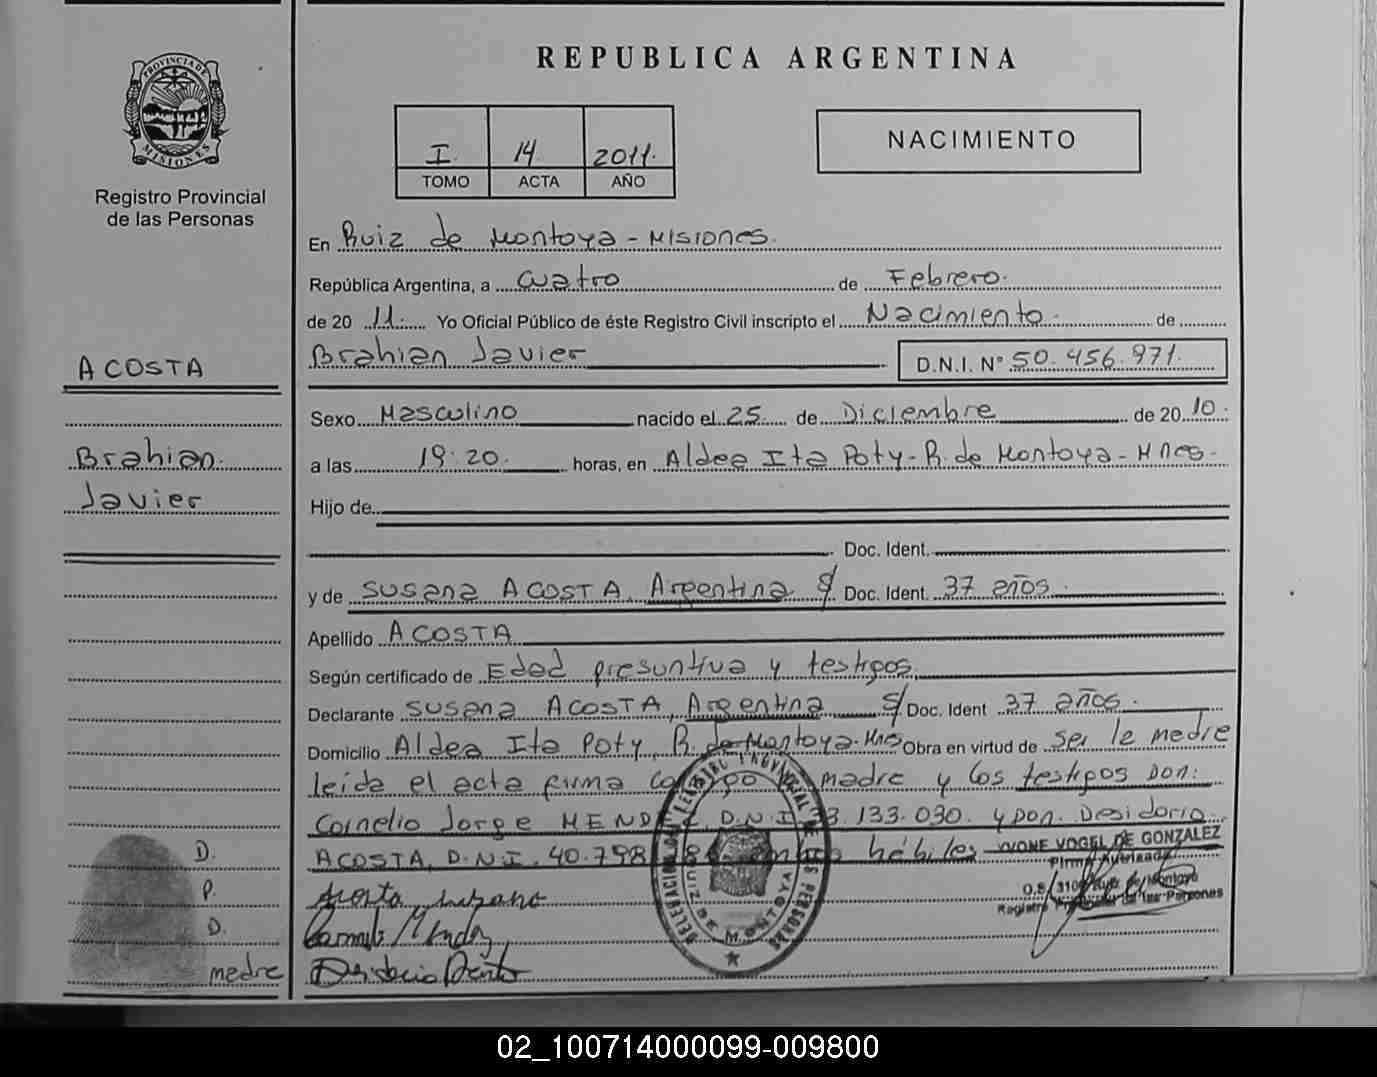 PROVINCIA DE
MISIONES
Registro Provincial
de las Personas
ACOSTA
Brahian
Javier
D.
P.
D.
madre
REPUBLICA ARGENTINA
I. 14 2011.
TOMO ACTA AÑO
NACIMIENTO
En Ruiz de Montoya - Misiones.
República Argentina, a cuatro de Febrero.
de 20 11. Yo Oficial Público de éste Registro Civil inscripto el Nacimiento. de
Brahian Javier D.N.I. N° 50.456.971.
Sexo Masculino nacido el 25 de Diciembre de 20 10.
a las 19:20. horas, en Aldea Ita Poty - R. de Montoya - Mnes.
Hijo de
Doc. Ident.
y de Susana ACOSTA, Argentina S/ Doc. Ident. 37 años.
Apellido ACOSTA
Según certificado de Edad presuntiva y testigos.
Declarante Susana ACOSTA, Argentina S/ Doc. Ident 37 años.
Domicilio Aldea Ita Poty, R. de Montoya-Mnes Obra en virtud de ser la madre
leída el acta firma madre y los testigos Don:
Cornelio Jorge D.N.I. 133.030. y Don. Desidorio
ACOSTA, D.N.I. 40.798 hábiles IVONE VOGEL DE GONZALEZ
Firma Autorizada
Registro Provincial de las Personas
RUIZ DE MONTOYA
02_100714000099-009800